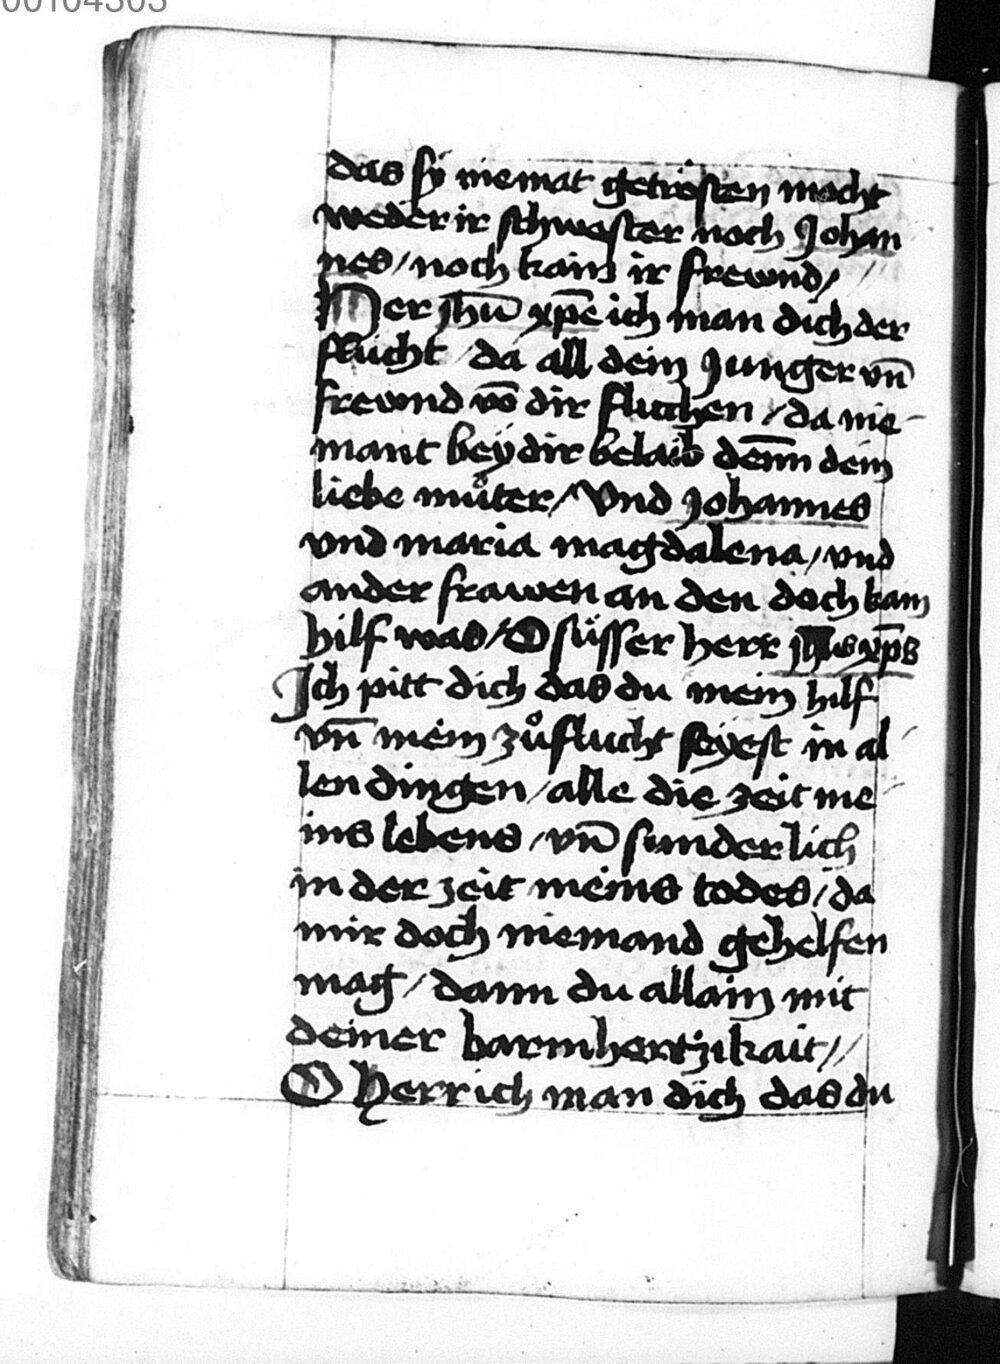 00104303
das sÿ niemat getrösten mocht
weder ir schwester noch Johan
nes / noch kain ir frewnd //
Her jhu̅ xp̅e ich man dich der
flucht / da all dein Junger vn̅
frewnd vo̅ dir fluchen / da nie-
mant beÿ dir belaib den̅n dein
liebe mu̇ter / Vnd Johannes
vnd maria magdalena / vnd
ander frawen an den doch kain
hilf was / O süsser herr jhus xp̅s
Ich pitt dich das du mein hilf
vn̅ mein zůflucht seÿest in al-
len dingen / alle die zeit me-
ins lebens / vn̅ sunderlich
in der zeit meins todes / da
mir doch niemand gehelfen
mag / dann du allain mit
deiner barmhertzikait //
O Herr ich man dich das du